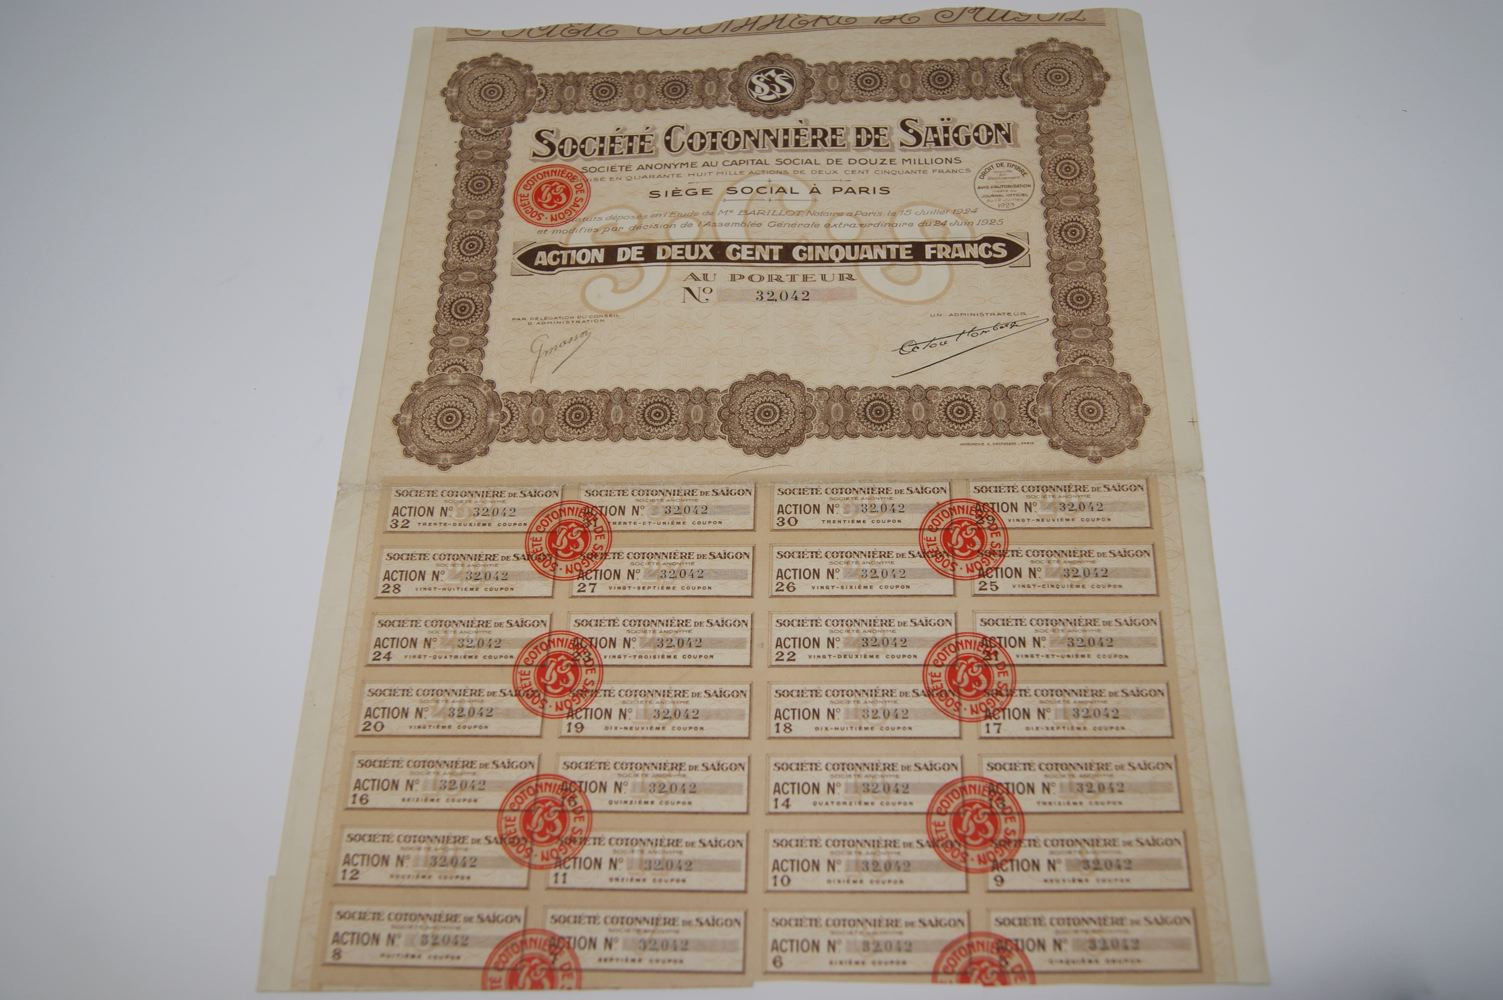 SOCIÉTÉ COTONNIÈRE DE SAÏGON
SOCIÉTÉ ANONYME AU CAPITAL SOCIAL DE DOUZE MILLIONS
EN QUARANTE HUIT MILLE ACTIONS DE DEUX CENT CINQUANTE FRANCS
SIÈGE SOCIAL À PARIS
SOCIÉTÉ COTONNIÈRE DE SAIGON
DROIT DE TIMBRE
AVIS D'AUTORISATION
JOURNAL OFFICIEL
1925
Statuts déposés en l'Étude de Me BARILLOT, Notaire à Paris, le 15 Juillet 1924
et modifiés par décision de l'Assemblée Générale extraordinaire du 24 Juin 1925
ACTION DE DEUX CENT CINQUANTE FRANCS
AU PORTEUR
No. 32,042
PAR DÉLÉGATION DU CONSEIL
D'ADMINISTRATION
UN ADMINISTRATEUR
SOCIÉTÉ COTONNIÈRE DE SAÏGON
SOCIÉTÉ ANONYME
ACTION No 32,042
32 TRENTE-DEUXIÈME COUPON
SOCIÉTÉ COTONNIÈRE DE SAÏGON
SOCIÉTÉ ANONYME
ACTION No 32,042
TRENTE-ET-UNIÈME COUPON
SOCIÉTÉ COTONNIÈRE DE SAÏGON
SOCIÉTÉ ANONYME
ACTION No 32,042
30 TRENTIÈME COUPON
SOCIÉTÉ COTONNIÈRE DE SAÏGON
SOCIÉTÉ ANONYME
ACTION No 32,042
VINGT-NEUVIÈME COUPON
SOCIÉTÉ COTONNIÈRE DE SAÏGON
SOCIÉTÉ ANONYME
ACTION No 32,042
28 VINGT-HUITIÈME COUPON
SOCIÉTÉ COTONNIÈRE DE SAÏGON
SOCIÉTÉ ANONYME
ACTION No 32,042
27 VINGT-SEPTIÈME COUPON
SOCIÉTÉ COTONNIÈRE DE SAÏGON
SOCIÉTÉ ANONYME
ACTION No 32,042
26 VINGT-SIXIÈME COUPON
SOCIÉTÉ COTONNIÈRE DE SAÏGON
SOCIÉTÉ ANONYME
ACTION No 32,042
25 VINGT-CINQUIÈME COUPON
SOCIÉTÉ COTONNIÈRE DE SAÏGON
SOCIÉTÉ ANONYME
ACTION No 32,042
24 VINGT-QUATRIÈME COUPON
SOCIÉTÉ COTONNIÈRE DE SAÏGON
SOCIÉTÉ ANONYME
ACTION No 32,042
VINGT-TROISIÈME COUPON
SOCIÉTÉ COTONNIÈRE DE SAÏGON
SOCIÉTÉ ANONYME
ACTION No 32,042
22 VINGT-DEUXIÈME COUPON
SOCIÉTÉ COTONNIÈRE DE SAÏGON
SOCIÉTÉ ANONYME
ACTION No 32,042
21 VINGT-ET-UNIÈME COUPON
SOCIÉTÉ COTONNIÈRE DE SAÏGON
SOCIÉTÉ ANONYME
ACTION No 32,042
20 VINGTIÈME COUPON
SOCIÉTÉ COTONNIÈRE DE SAÏGON
SOCIÉTÉ ANONYME
ACTION No 32,042
19 DIX-NEUVIÈME COUPON
SOCIÉTÉ COTONNIÈRE DE SAÏGON
SOCIÉTÉ ANONYME
ACTION No 32,042
18 DIX-HUITIÈME COUPON
SOCIÉTÉ COTONNIÈRE DE SAÏGON
SOCIÉTÉ ANONYME
ACTION No 32,042
17 DIX-SEPTIÈME COUPON
SOCIÉTÉ COTONNIÈRE DE SAÏGON
SOCIÉTÉ ANONYME
ACTION No 32,042
16 SEIZIÈME COUPON
SOCIÉTÉ COTONNIÈRE DE SAÏGON
SOCIÉTÉ ANONYME
ACTION No 32,042
15 QUINZIÈME COUPON
SOCIÉTÉ COTONNIÈRE DE SAÏGON
SOCIÉTÉ ANONYME
ACTION No 32,042
14 QUATORZIÈME COUPON
SOCIÉTÉ COTONNIÈRE DE SAÏGON
SOCIÉTÉ ANONYME
ACTION No 32,042
13 TREIZIÈME COUPON
SOCIÉTÉ COTONNIÈRE DE SAÏGON
SOCIÉTÉ ANONYME
ACTION No 32,042
12 DOUZIÈME COUPON
SOCIÉTÉ COTONNIÈRE DE SAÏGON
SOCIÉTÉ ANONYME
ACTION No 32,042
11 ONZIÈME COUPON
SOCIÉTÉ COTONNIÈRE DE SAÏGON
SOCIÉTÉ ANONYME
ACTION No 32,042
10 DIXIÈME COUPON
SOCIÉTÉ COTONNIÈRE DE SAÏGON
SOCIÉTÉ ANONYME
ACTION No 32,042
9 NEUVIÈME COUPON
SOCIÉTÉ COTONNIÈRE DE SAÏGON
SOCIÉTÉ ANONYME
ACTION No 32,042
8 HUITIÈME COUPON
SOCIÉTÉ COTONNIÈRE DE SAÏGON
SOCIÉTÉ ANONYME
ACTION No 32,042
7 SEPTIÈME COUPON
SOCIÉTÉ COTONNIÈRE DE SAÏGON
SOCIÉTÉ ANONYME
ACTION No 32,042
6 SIXIÈME COUPON
SOCIÉTÉ COTONNIÈRE DE SAÏGON
SOCIÉTÉ ANONYME
ACTION No 32,042
CINQUIÈME COUPON